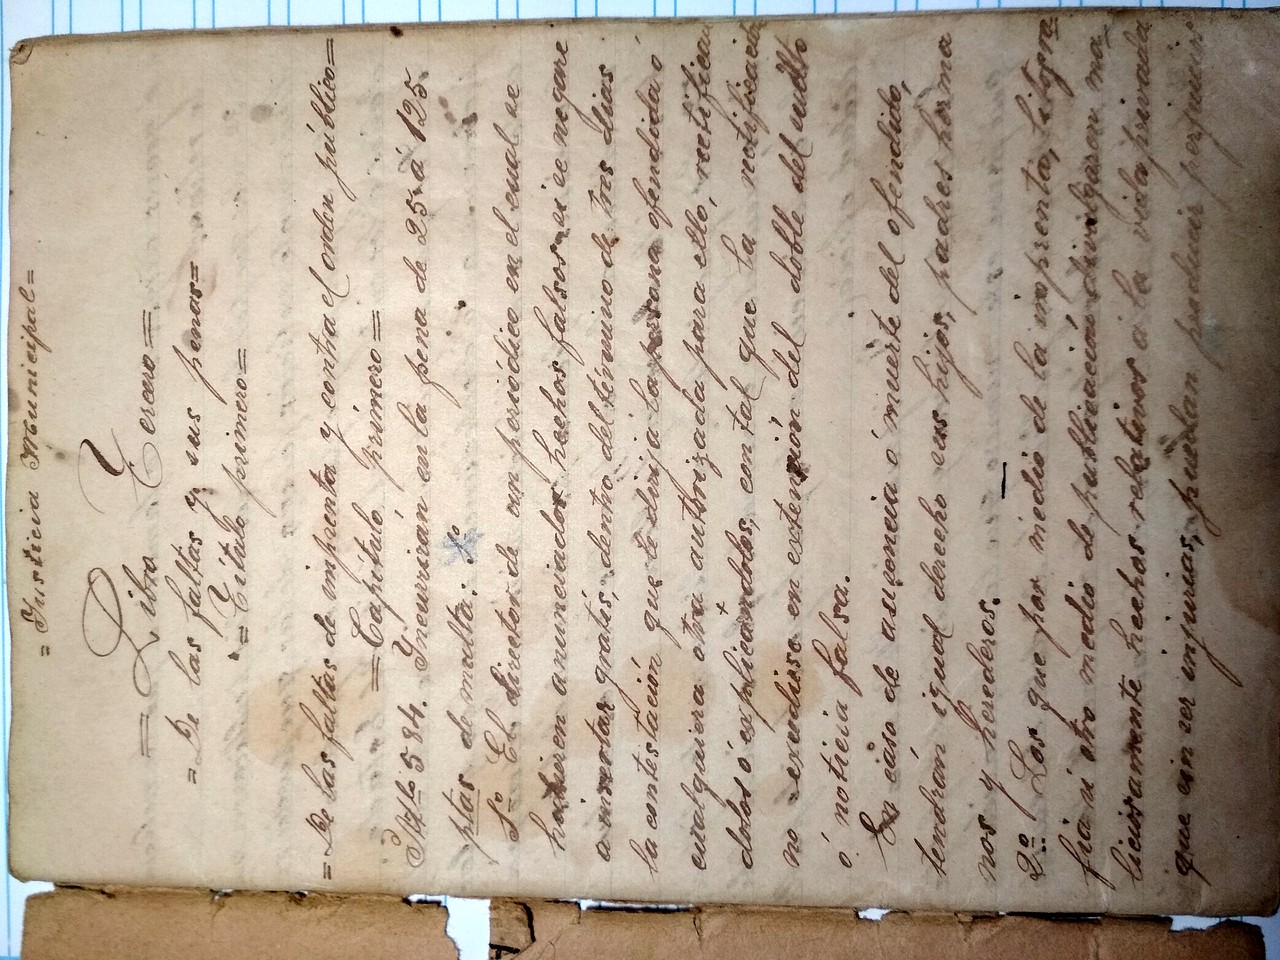 = Justicia Municipal =
= Libro Tercero =
= De las faltas y sus penas =
= Título primero =
= De las faltas de imprenta y contra el orden público =
= Capítulo primero =
Artlo 584. Incurriran en la pena de 25 á 125
ptas de multa:
1º El director de un periódico en el cual se
hubieren anunciados hechos falsos si se negare
a insertar gratis, dentro del término de tres dias
la contestación que le dirija la persona ofendida ó
cualquiera otra autorizada para ello, rectifican
dolos ó explicandolos, con tal que la rectificación
no excediese en extensión del doble del suelto
ó noticia falsa.
En caso de ausencia ó muerte del ofendido,
tendrán igual derecho sus hijos, padres herma
nos y herederos.
2º Los que por medio de la imprenta, litogra
fia ú otro medio de publicación divulgaren ma
liciosamente hechos relativos a la vida privada
que sin ser injurias, puedan producir perjuicios